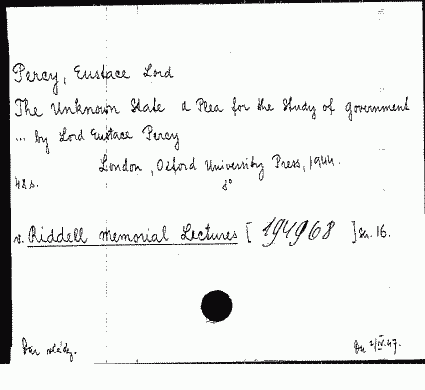 Percy, Eustace Lord
The Unknown State a Plea for the Study of government
... by Lord Eustace Percy
London, Oxford University Press, 1944.
48 s. 8°
v. Riddell Memorial Lectures [ 194968 ] Ser. 16.
Dar vlády. Du 2/IV.47.